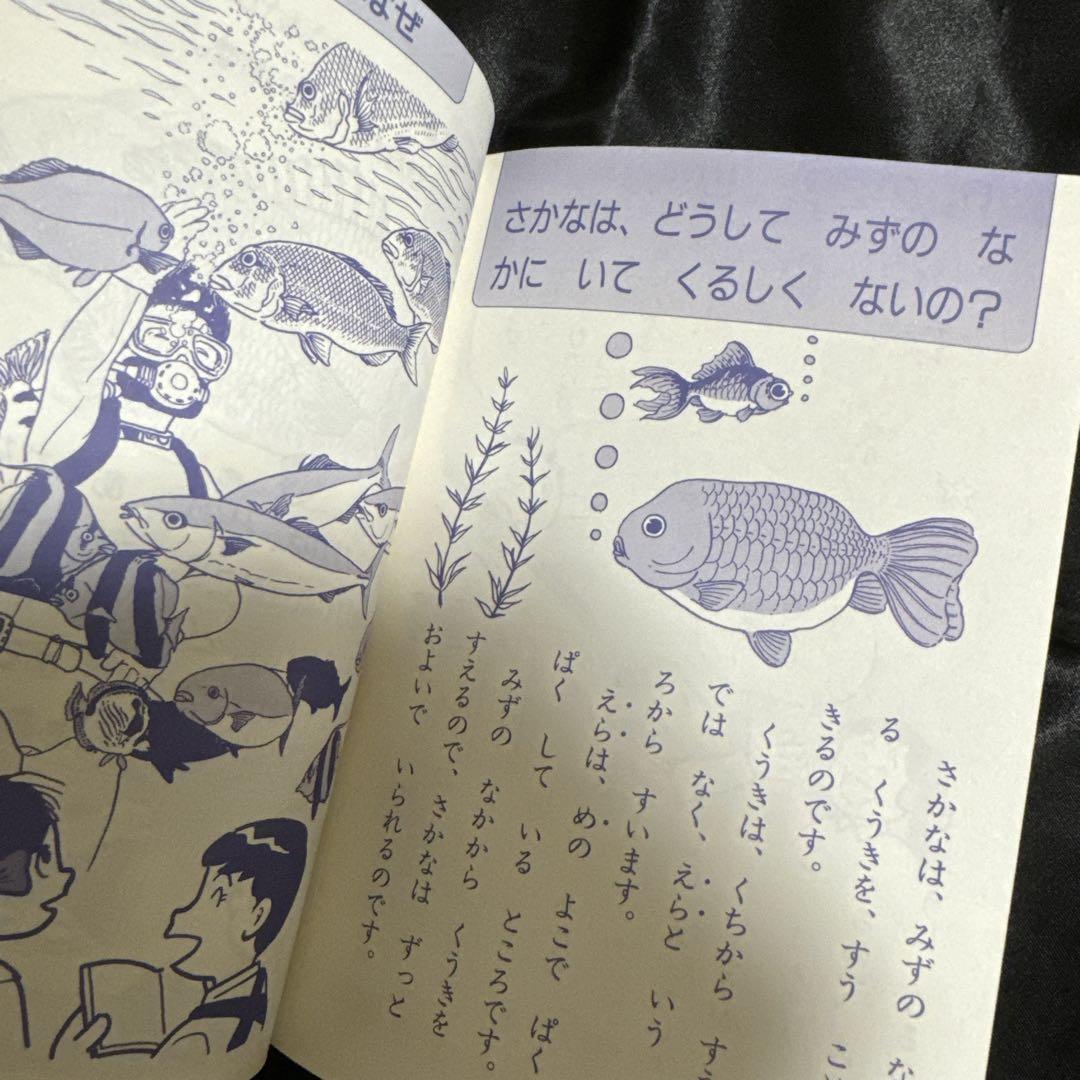 なぜ
さかなは、どうして みずの な
かに いて くるしく ないの?
さかなは、みずの な
る くうきを、すう こ
きるのです。
くうきは、くちから す
では なく、えらと いう
ろから すいます。
えらは、めの よこで ぱく
ぱく して いる ところです。
みずの なかから くうきを
すえるので、さかなは ずっと
およいで いられるのです。